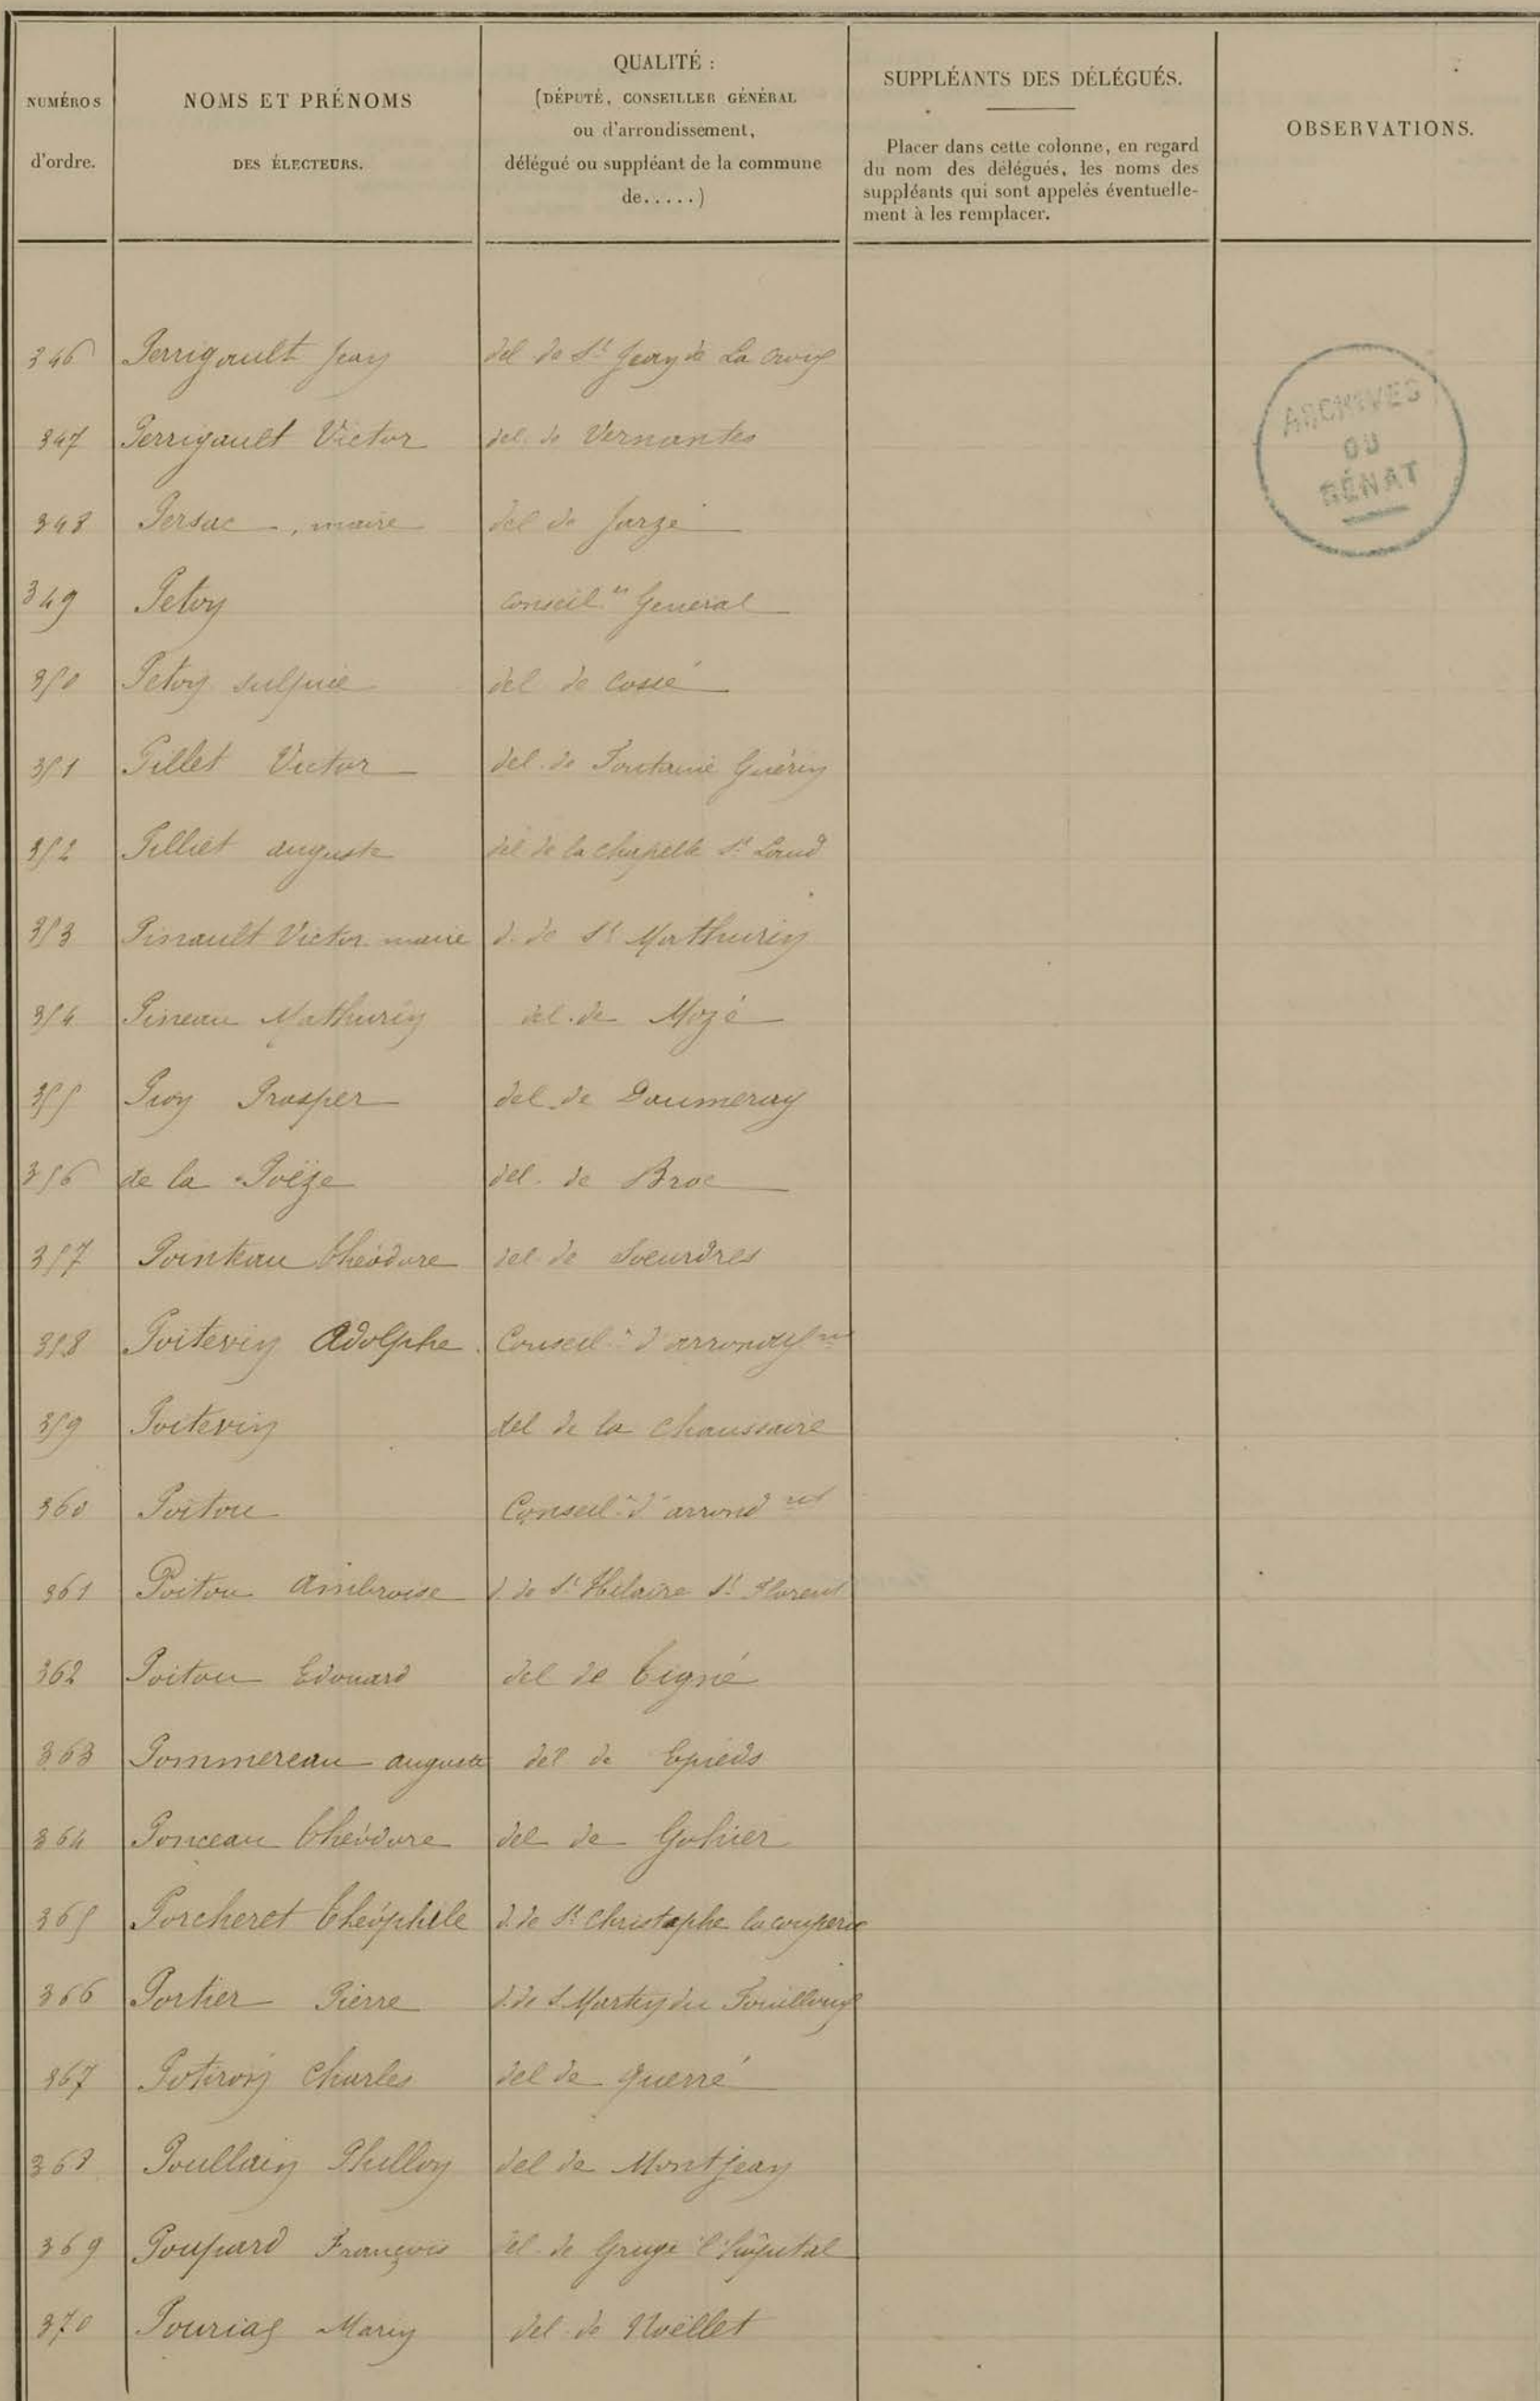 NUMÉROS
d'ordre.
NOMS ET PRÉNOMS
DES ÉLECTEURS.
QUALITÉ :
(DÉPUTÉ, CONSEILLER GÉNÉRAL
ou d'arrondissement,
délégué ou suppléant de la commune
de.....)
SUPPLÉANTS DES DÉLÉGUÉS.
Placer dans cette colonne, en regard
du nom des délégués, les noms des
suppléants qui sont appelés éventuelle-
ment à les remplacer.
OBSERVATIONS.
ARCHIVES
DU
SÉNAT
346 Perrigault Jean del de St Jean de La Croix
347 Perrigault Victor del. de Vernantes
348 Persac, maire del de Jarzé
349 Peton Conseil.er General
350 Peton sulpice del de Cossé
351 Pillet Victor del. de Fontaine Guérin
352 Pilliet auguste del de la chapelle St Laud
353 Pinault Victor maire d. de St Mathurin
354 Pineau Mathurin del. de Mozé
355 Prosper del. de Daumeray
356 de la Poëze del. de Broc
357 Pointeau théodore del. de Soeurdres
358 Poitevin Adolphe Conseil.r d'
359 Poitevin del de la Chaussaire
360 Poitou Conseil.r d'arrond mt
361 Poitou Ambroise d. de St Hilaire St Florent
362 Poitou Edouard del de Tigné
363 Pommereau auguste del de Epieds
364 Ponceau théodore del de Gohier
365 Porcheret théophile d. de St Christophe la couperie
366 Portier Pierre d. de S. Martin du Fouilloux
367 Potiron Charles del de querré
368 Poullain del de Montjean
369 Poupard François del. de Grugé l'hôpital
370 Pourias Marin del de Noëllet